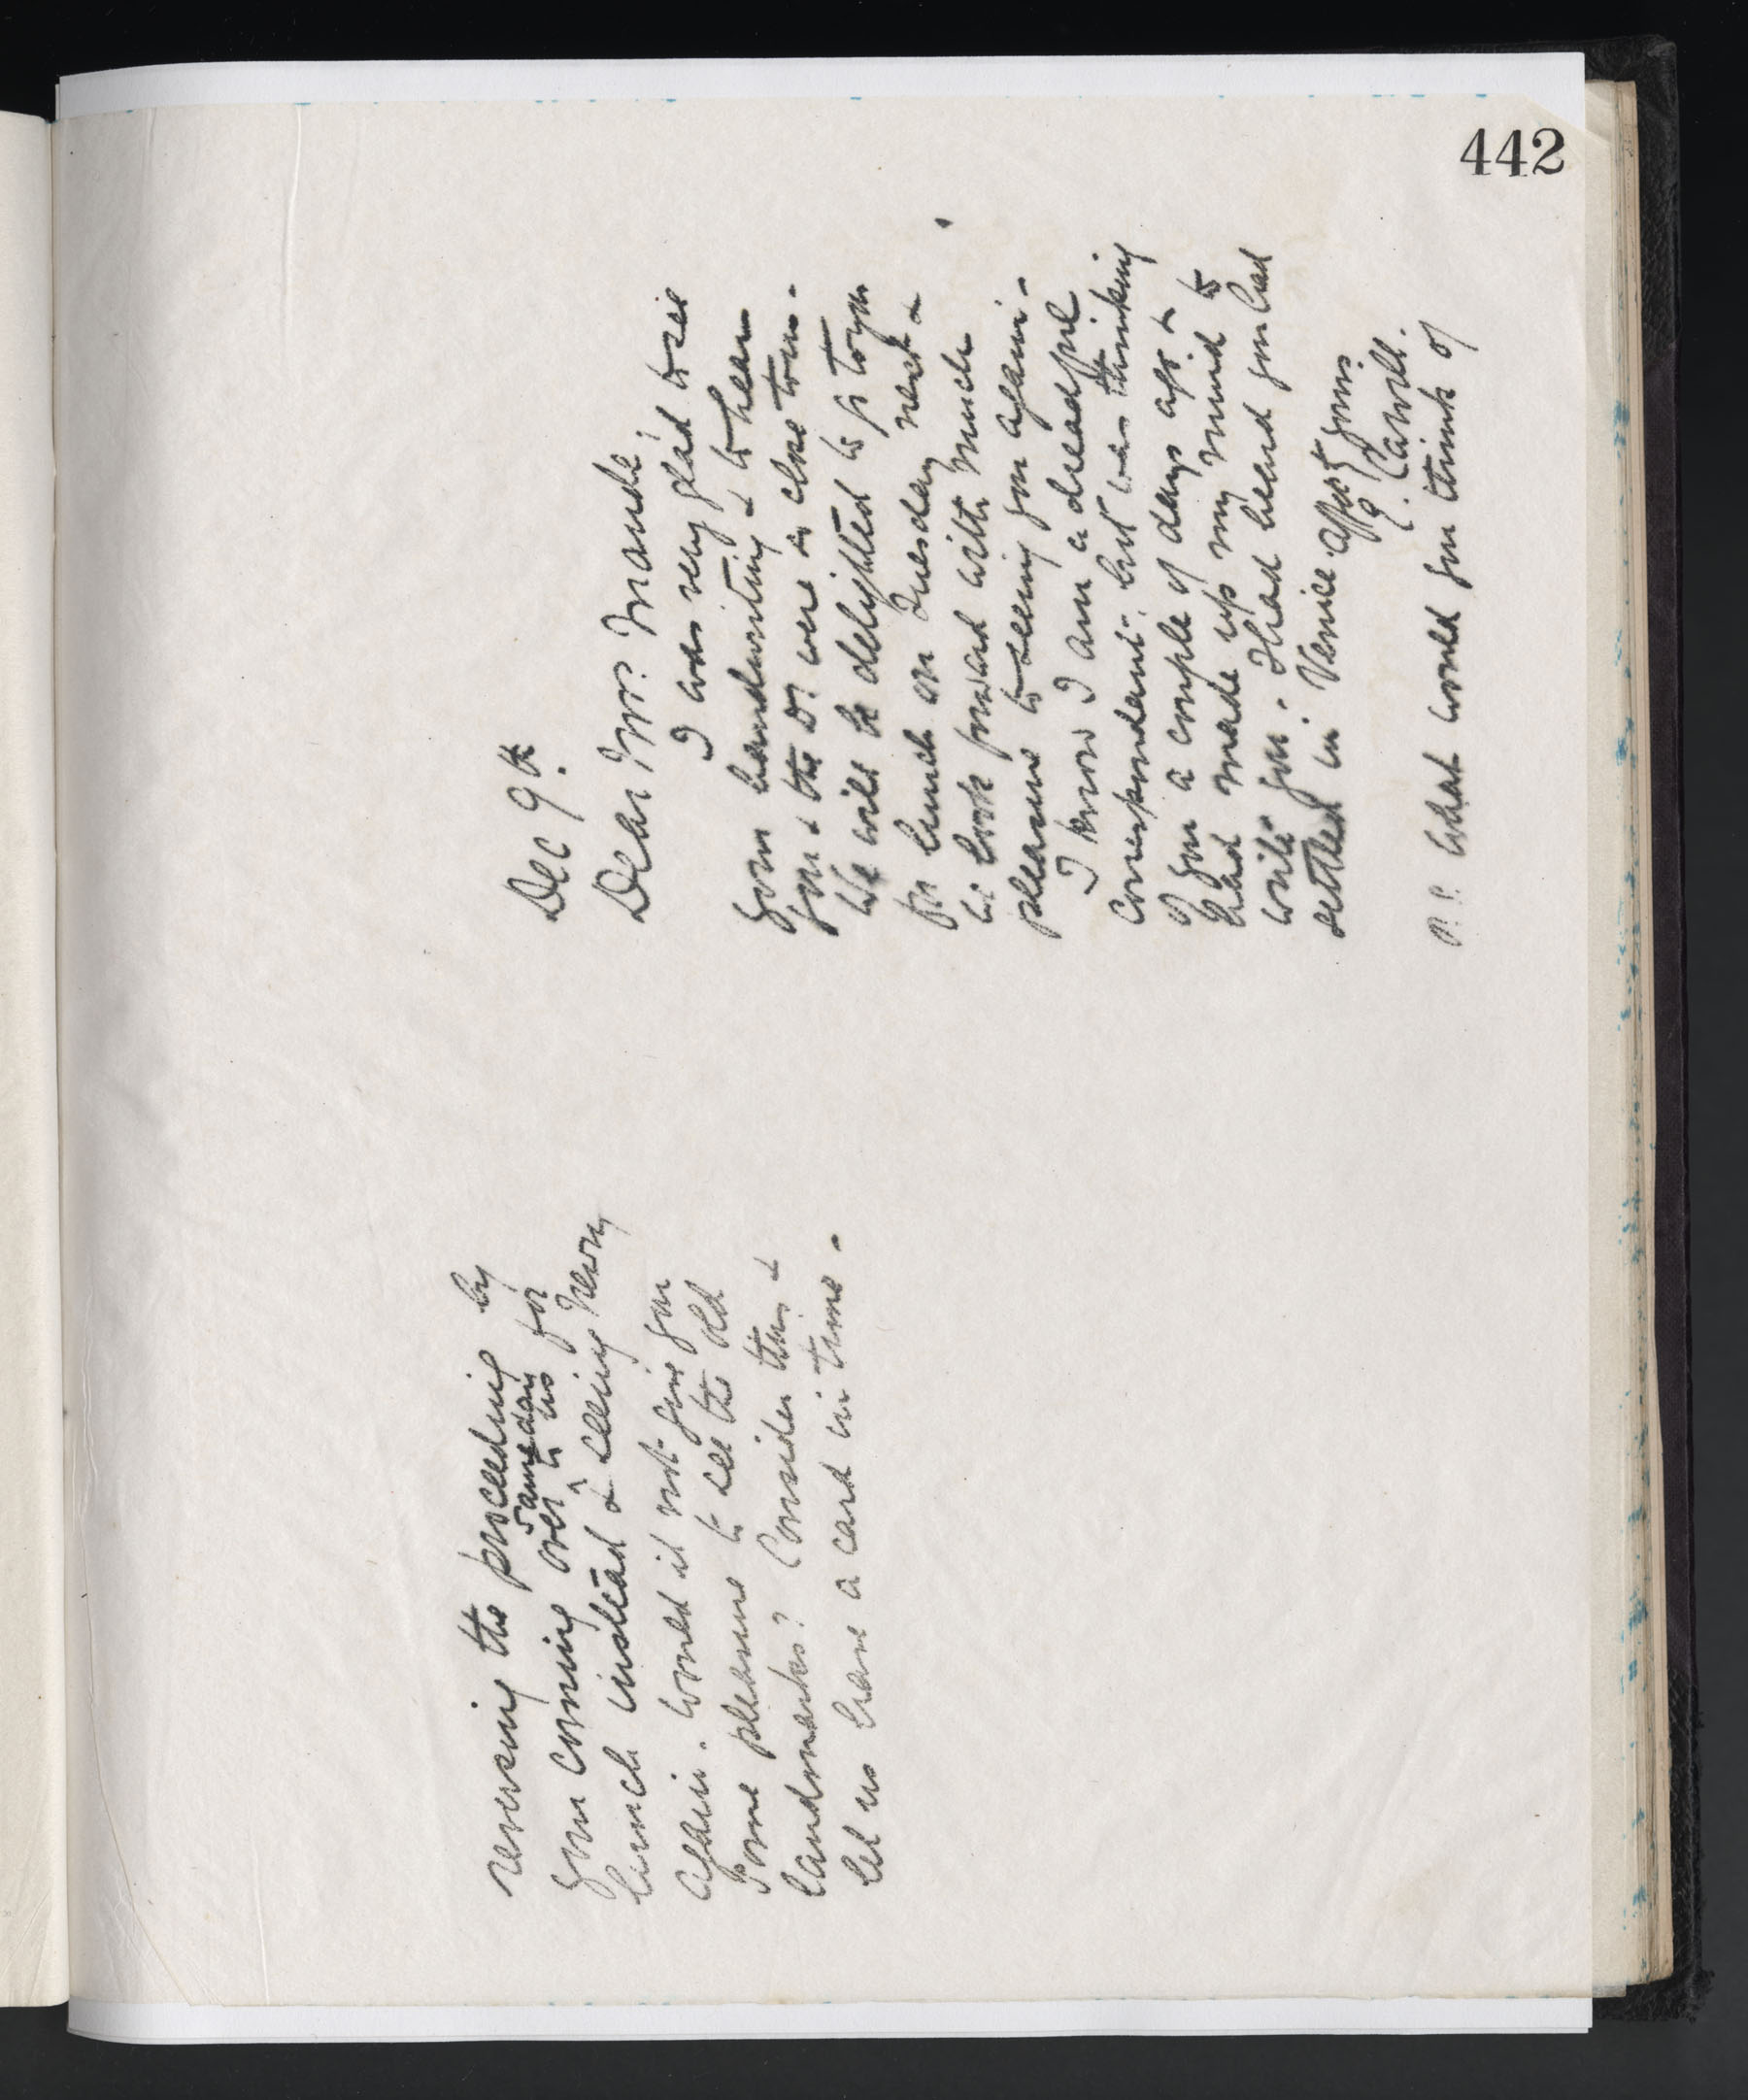 442
Dec 9th.
Dear Mrs. Maude,
I was very glad to see
your handwriting & to hear
you & the Dr. were in close town.
We will be delighted to go to you
for lunch on Tuesday next &
we look forward with much
pleasure to seeing you again.
I know I am a dreadful
correspondent but was thinking
of you a couple of days ago &
had made up my mind to
write you. I had heard you had
settled in Venice. Afftly yours
E. Carvill.
P.S. What would you think of
reversing the proceeding by
same day
you coming over ^ to us for
lunch instead & seeing Newry
again. Would it not give you
some pleasure to see the old
landmarks? Consider this &
let us have a card in time.